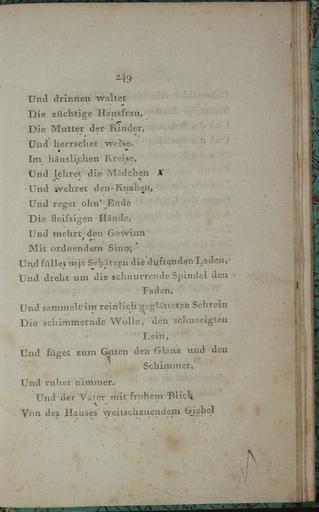 249
Und drinnen waltet
Die züchtige Hausfrau,
Die Mutter der Kinder,
Und herrschet weise.
Im häuslichen Kreise,
Und lehret die Mädchen
Und wehret den Knaben,
Und reget ohn' Ende
Die fleissigen Hände,
Und mehrt den Gewinn
Mit ordnendem Sinn,
Und füllet mit Schätzen die duftenden Laden,
Und dreht um die schnurrende Spindel den
Faden,
Und sammelt im reinlich geglätteten Schrein
Die schimmernde Wolle, den schneeigten
Lein,
Und füget zum Guten den Glanz und den
Schimmer,
Und ruhet nimmer.
Und der Vater mit frohem Blick
Von des Hauses weitschauendem Giebel